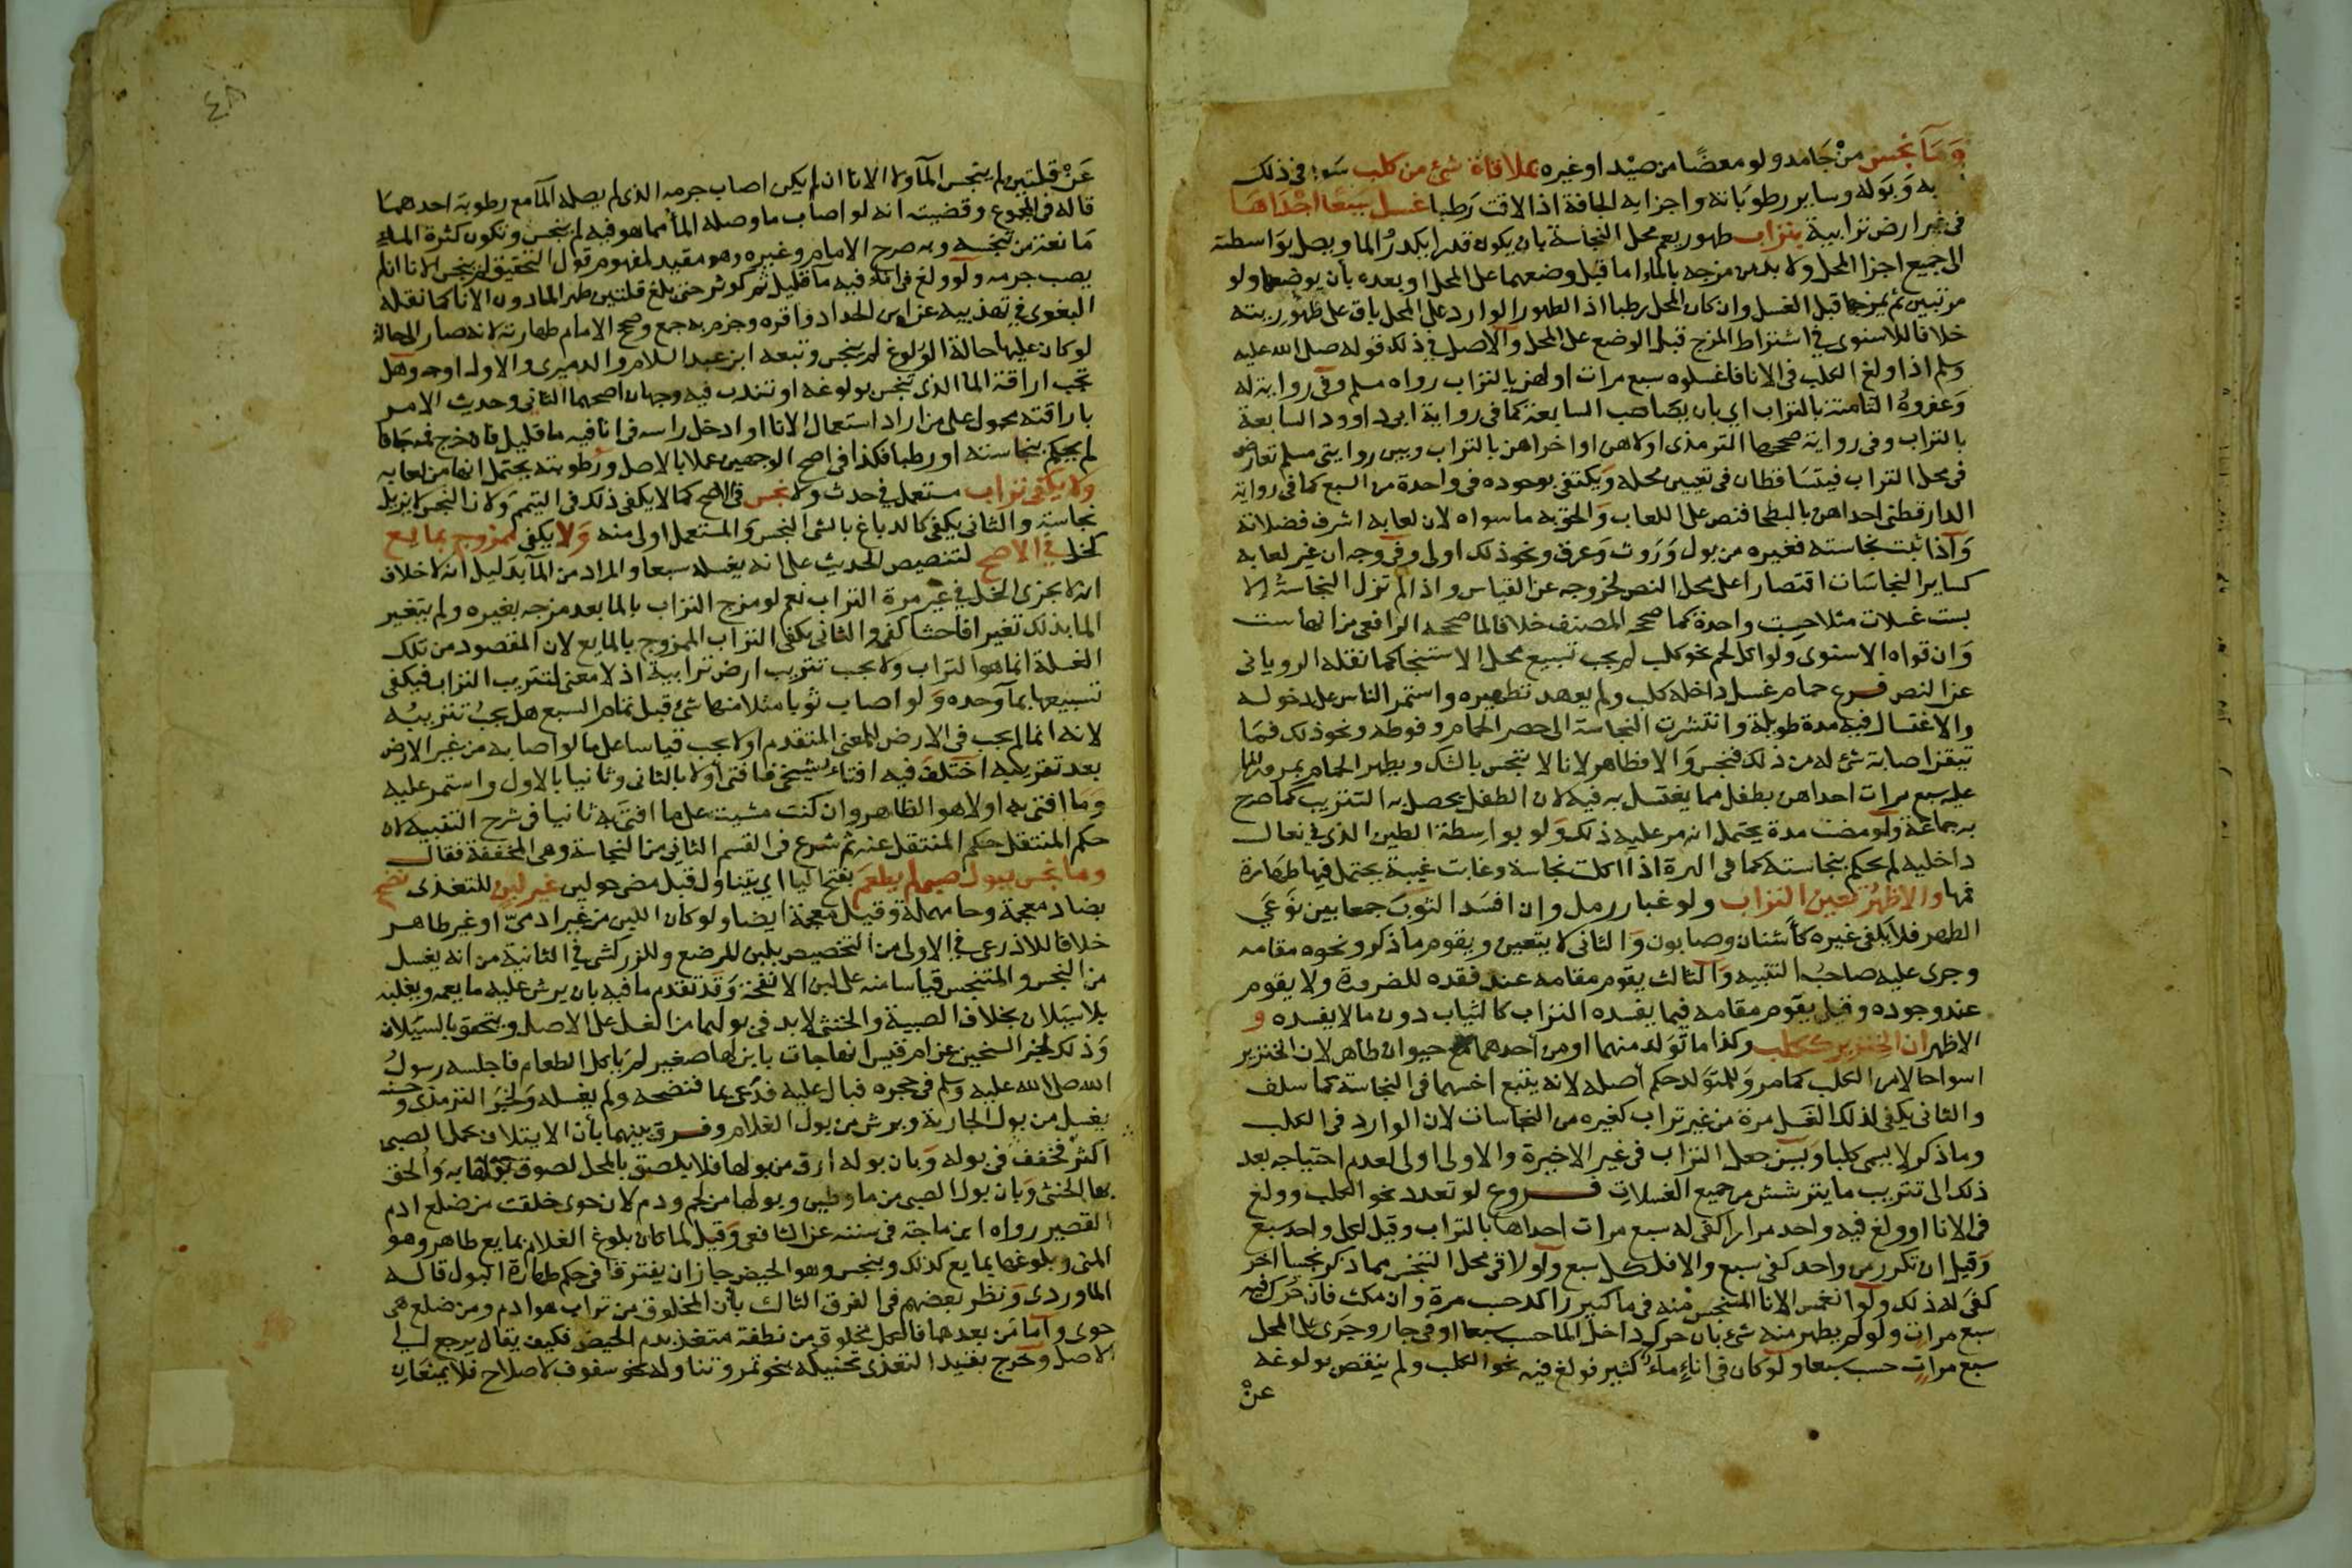 وَمَا نجس من جَامد ولو معضًا من صيْد او غيره بملاقاة شئ من كلب سوا في ذلك
به وَبَوله وساير رطوبَاته واجزايه الجافة اذا لاقت رَطبا غسل سَبعًا احْدَاهَا
في غير ارض ترابية بتراب طهور يعم محل النجاسة بان يكون قدرا يكدرُ الما ويصل بوَاسطته
الى جميع اجزا المحل ولا بد من مزجه بالماء اما قبل وضعهما على المحل او بعده بان يوضعا ولو
مرتبين ثم يمزجا قبل الغسل وان كان المحل رطبا اذ الطهور الوارد على المحل باق على طهوريته
خلافا للاسنوي في اشتراط المزج قبل الوضع على المحل والاصل في ذلك قوله صلى الله عليه
وسلم اذا ولغ الكلب في الانا فاغسلوه سبع مرات اولاهن بالتراب رواه مسلم وفى رواية له
وَعفروهُ الثامنة بالتراب اي بان يصَاحب السابعة كما في رواية ابى داوود السابعة
بالتراب وفي رواية صححها الترمذى اولاهن او اخراهن بالتراب وبين روايتى مسلم تعارض
في محل التراب فيتسَاقطان في تعيين محله وَيكتفى بوجوده في واحدة من السبع كما في رواية
الدارقطنى احداهن بالبطحا فنص على اللعاب وَالحق به ما سواه لان لعابه اشرف فضلاته
وَاذا ثبت نجاسته فغيره من بول وَرَوث وَعرق ونحو ذلك اولى وفي وجه ان غير لعابه
كساير النجاسَات اقتصارا على محل النص لخروجه عن القياس واذا لم تزل النجاسَة الا
بست غسلات مثلا حسبت واحدة كما صححه المصنف خلافا لما صححه الرافعى من انها ست
وَان قواه الاسنوى ولو اكل لحم نحو كلب لم يجب تسبيع محل الاستنجا كما نقله الرويانى
عن النص فرع حمام غسل داخله كلب ولم يعهد تطهيره واستمر الناس على دخوله
والاغتسال فيه مدة طويلة وانتشرت النجاسة الى حصر الحمام وفوطه ونحو ذلك فمَا
تيقن اصابة شئ له من ذلك فنجس وَالا فطاهر لانا لا ننجس بالشك ويطهر الحمام بمرور الما
عليه سبع مرات احداهن بطفل مما يغتسل به فيه لان الطفل يحصل به التتريب كما صرح
به جماعة ولو مضت مدة يحتمل انه مر عليه ذلك وَلو بوَاسِطة الطين الذي في نعال
داخليه لم يحكم بنجاسته كما في الهرة اذا اكلت نجاسة وغابت غيبة يحتمل فيها طهَارة
فمها والاظهرُ تعين التراب ولو غبار رمل وان افسَد الثوب جمعا بين نَوعَي
الطهر فلا يكفي غيره كأُشنان وصابون وَالثانى لا يتعين ويقوم ما ذكر ونحوه مقامه
وجرى عليه صاحبُ التنبيه وَالثالث يقوم مقامه عند فقده للضرورة ولا يقوم
عند وجوده وقيل يقوم مقامه فيما يفسده التراب كالثياب دون ما لا يفسده و
الاظهر ان الخنزير ككلب وكذا ما تَوَلد منهما او من احدهما مع حيوان طاهر لان الخنزير
اسوا حالا من الكلب كما مر وَللمتَوَلد حكم اصله لانه يتبع اخسهما في النجاسة كما سلف
والثانى يكفى لذلك الغسل مرة من غير تراب كغيره من النجاسات لان الوارد في الكلب
وما ذكر لا يسمى كلبا وَيسن جعل التراب في غير الاخيرة والاولى اولى لعدم احتياجه بعد
ذلك الى تتريب ما يترشش من جميع الغسلاتِ فــروع لو تعدد نحو الكلب وولغ
في الانا او ولغ فيه واحد مرارا كفى له سبع مرات احداها بالتراب وقيل لكل واحد سبع
وَقيل ان تكرر من واحد كفى سبع والا فلكل سبع وَلو لاقى محل التنجس مما ذكر نجسا اخر
كفىَ له ذلك ولو انغمس الانا المتنجس منه في ما كثير راكد حسب مرة وان مكث فان حَرك فيه
سبع مرات ولو لم يظهر منه شئ بان حرك داخل الما حسب سبعا او في جار وجَرى على المحل
سبع مراتٍ حسب سبعا ولو كان في اناءٍ ماء كثير فولغ فيه نحو الكلب ولم ينقص بولوغه
عنْ
٤٨
عَنْ قلتين لم ينجس المآ ولا الانا ان لم يكن اصاب جرمه الذى لم يصله المآ مع رطوبة احدهمَا
قاله في المجموع وقضيته انه لو اصاب ما وصله المآ مما هو فيه لم ينجس وتكون كثرة الماء
مَانعة من تنجسه وبه صرح الامام وغيره وهو مقيد لمفهوم قول التحقيق لم ينجس الانا ان لم
يصب جرمه ولو ولغ في انا فيه ما قليل ثم كوثر حتى بلغ قلتين طهر الما دون الانا كما نقله
البغوي في تهذيبه عن ابن الحداد واقره وجزم به جمع وصحح الامام طهارته لانه صار الى حالة
لو كان عليها حالة الولوغ لم ينجس وتبعه ابن عبد السلام والدميرى والاول اوجه وهل
تجب اراقة الما الذى تنجس بولوغه او تندب فيه وجهان اصحهما الثانى وحديث الامر
باراقته محمول على من اراد استعمال الانا او ادخل راسه في انا فيه ما قليل فان خرج فمه جافا
لم يحكم بنجاسته او رطبا فكذا في اصح الوجهين عملا بالاصل ورُطوبته يحتمل انها من لعابه
ولا يكفي تراب مستعمل في حدث ولا نجس في الاصح كما لا يكفى ذلك في التيمم وَلان النجس لا يزيل
نجاسَة والثانى يكفى كالدباغ بالشى النجس وَالمستعمل اولى منه وَلا يكفى ممزوج بمايع
كخل في الاصح لتنصيص الحديث على انه يغسله سبعا والمراد من الما بدَليل انه لا خلاف
انه لا يجزى الخل في غير مرة التراب نعم لو مزج التراب بالما بعد مزجه بغيره ولم يتغير
الما بذلك تغيرا فاحشا كفى والثانى يكفى التراب الممزوج بالمايع لان المقصود من تلك
الغسلة انما هو التراب ولا يجب تتريب ارض ترابية اذ لا معنى لتتريب التراب فيكفى
تسبيعها بمآ وحده وَلو اصاب ثوبا مثلا منها شئ قبل تمام السبع هل يجبُ تتريبُه
لانه انما لم يجب في الارض للمعنى المتقدم او لا يجب قياسا على ما لو اصابه من غير الارض
بعد تتريبه اختلف فيه افتاء شيخي فافتى اولا بالثانى وثانيا بالاول واستمر عليه
وَمَا افتى به اولا هو الظاهر وان كنت مشيت على ما افتَى به ثانيا في شرح التنبيه لان
حكم المنتقل حكم المنتقل عنه ثم شرع في القسم الثانِى من النجاسة وهى المخففة فقال
وما نجس ببول صبى لم يطعَم بفتح اليا اي يتناول قبل مضى حولين غير لبن للتغذى نضح
بضاد معجمة وحا مهملة وقيل معجمة ايضا ولو كان اللبن من غير ادمىّ او غير طاهر
خلافا للاذرعى في الاولى من التخصيص بلبن المرضع وللزركشى في الثانية من انه يغسل
من النجس والمتنجس قياسا منه على لبن الانفحة وَقدْ تقدم ما فيه بان يرش عليه ما يعمه ويغلبه
بلا سَيَلان بخلاف الصبية والخنثى لا بد في بولهما من الغسل على الاصل ويتحقق بالسيَلان
وَذلك لخبر الشيخين عن ام قيس انها جات بابن لها صغير لم يَاكل الطعام فاجلسه رسولُ
الله صلى الله عليه وسلم في حجره فبال عليه فدَعى بما فنضحه ولم يغسله وَلخبر الترمذى وحسنه
يغسل من بول الجارية ويرش من بول الغلام وفرق بينهما بأن الايتلاف بحمل الصبى
اكثر فخفف في بوله وَبان بوله ارق من بولها فلا يلصق بالمحل لصوق بولها به وَالحق
بها الخنثى وَبان بول الصبى من ما وطين وبولها من لحم ودم لان حوى خلقت من ضلع ادم
القصير رواه ابن ماجة في سننه عن الشافعى وَقيل لما كان بلوغ الغلام بمايع طاهر وهو
المنى وبلوغها بمايع كذلك وبنجس وهو الحيض جاز ان يفترقا في حكم طهارة البول قاله
الماوردى وَنظر بعضهم في الفرق الثالث بأن المخلوق من تراب هو ادم ومن ضلع هى
حوى وَاما من بعدهما فالكل مخلوق من نطفة متغذ بدم الحيض فكيف يقال يرجع الى
الاصل وخرج بقيد التغذى تحنيكه بنحو تمر وتناوله نحو سفوف لاصلاح فلا يمنعان